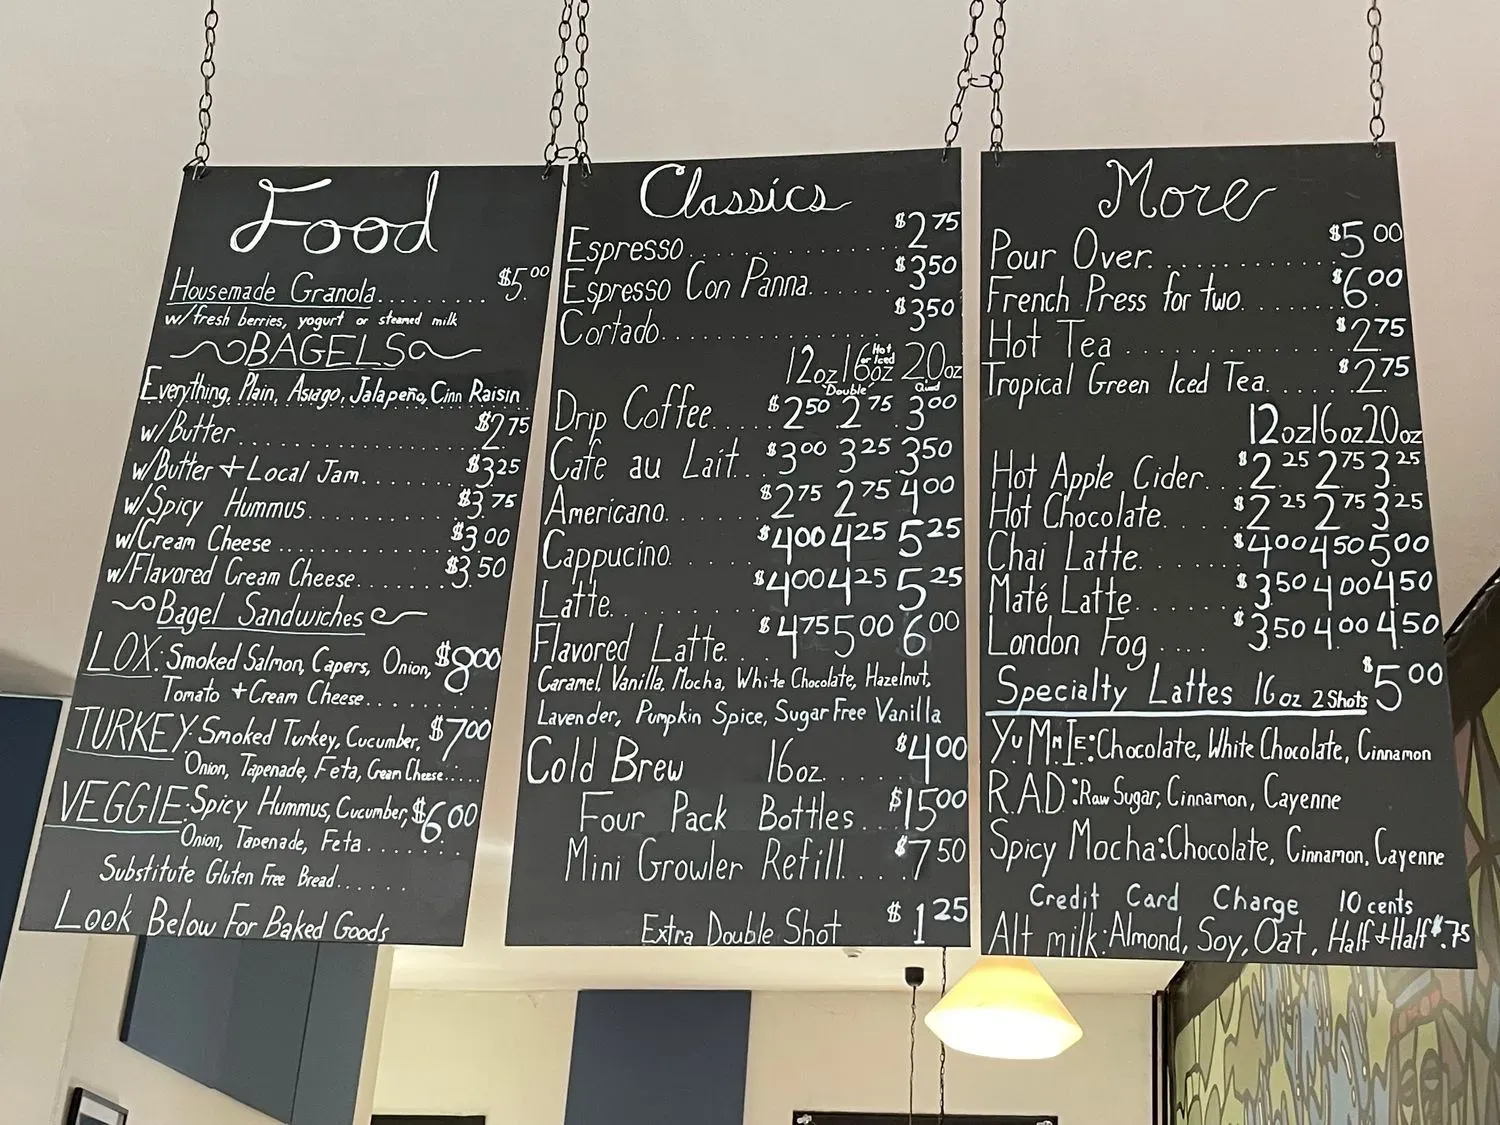 Food
Housemade Granola.......... $5.00
w/fresh berries, yogurt or steamed milk
BAGELS
Everything, Plain, Asiago, Jalapeño, Cinn Raisin
w/Butter.................. $2.75
w/Butter + Local Jam.......... $3.25
w/Spicy Hummus............ $3.75
w/Cream Cheese............ $3.00
w/Flavored Cream Cheese....... $3.50
Bagel Sandwiches
LOX: Smoked Salmon, Capers, Onion, $8.00
Tomato + Cream Cheese..........
TURKEY: Smoked Turkey, Cucumber, $7.00
Onion, Tapenade, Feta, Cream Cheese.....
VEGGIE: Spicy Hummus, Cucumber, $6.00
Onion, Tapenade, Feta........
Substitute Gluten Free Bread......
Look Below For Baked Goods
Classics
Espresso.................. $2.75
Espresso Con Panna....... $3.50
Cortado.................. $3.50
12oz 16oz Hot or Iced 20oz
"Double" Quad
Drip Coffee..... $2.50 2.75 3.00
Cafe au Lait.. $3.00 3.25 3.50
Americano...... $2.75 2.75 4.00
Cappucino...... $4.00 4.25 5.25
Latte.......... $4.00 4.25 5.25
Flavored Latte... $4.75 5.00 6.00
Caramel, Vanilla, Mocha, White Chocolate, Hazelnut,
Lavender, Pumpkin Spice, Sugar Free Vanilla
Cold Brew 16oz..... $4.00
Four Pack Bottles... $15.00
Mini Growler Refill.... $7.50
Extra Double Shot $1.25
More
Pour Over............ $5.00
French Press for two....... $6.00
Hot Tea............... $2.75
Tropical Green Iced Tea..... $2.75
12oz 16oz 20oz
Hot Apple Cider... $2.25 2.75 3.25
Hot Chocolate..... $2.25 2.75 3.25
Chai Latte........ $4.00 4.50 5.00
Maté Latte........ $3.50 4.00 4.50
London Fog.... $3.50 4.00 4.50
Specialty Lattes 16oz 2 Shots $5.00
YuMmIE: Chocolate, White Chocolate, Cinnamon
R.A.D: Raw Sugar, Cinnamon, Cayenne
Spicy Mocha: Chocolate, Cinnamon, Cayenne
Credit Card Charge 10 cents
Alt milk: Almond, Soy, Oat, Half + Half $.75